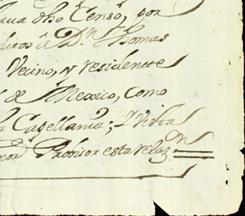 dho Censo, por
ditos â D.n Thomas
Vecino, y residente
de Mexico, como
Capellania; y vista
Probisor esta relaz.on